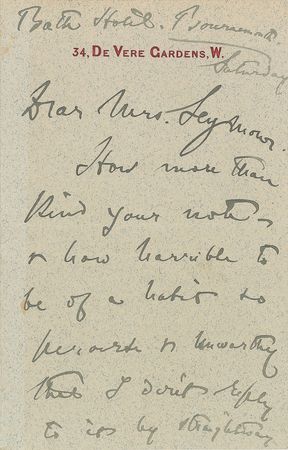 Bath Hotel. Bournemouth
34, DE VERE GARDENS, W.
Saturday
Dear Mrs. Seymour.
How more than
kind your note –
& how horrible to
be of a habit so
perverse & unworthy
that I don't reply
to it by straightway